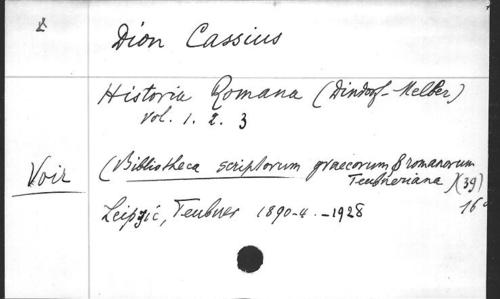 Dion Cassius
Historia Romana (Dindorf-Melber)
vol. 1. 2. 3
Voir
(Bibliotheca scriptorum graecorum & romanorum
Teubneriana) (39)
Leipzig, Teubner 1890-4. -1928
16°